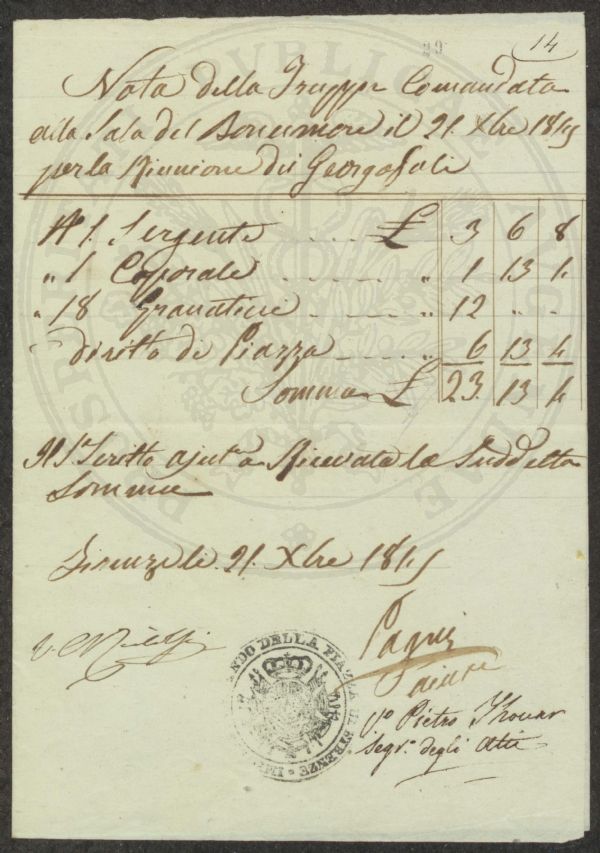 99
14
Nota della Truppa Comandata
alla Sala del Bonumore il 21. Xbre 1845
per la Riunione dei Georgofoli
N 1. Sergente .... £ 3 6 8
„ 1 Caporale ..... „ 1 13 4.
„ 18 Granatieri .... „ 12 „ „
diritto di Piazza .... „ 6 13 4
Somma £ 23. 13 4
Il Sscritto ajute a Ricevuto la Suddetta
Somma
Firenze li. 21. Xbre 1845
Pagni
Vo Pietro Thouar
Segro. degli Atti
COMANDO DELLA PIAZZA DI FIRENZE